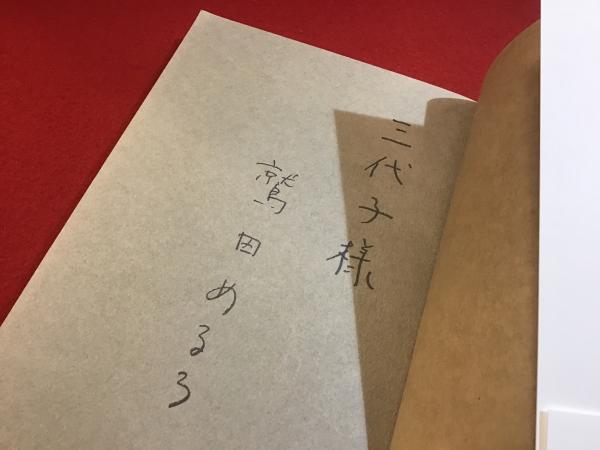 三代子様
鷲田めるろ